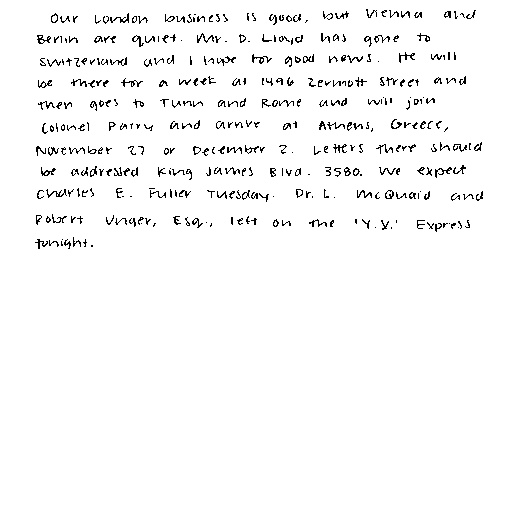 Our London business is good, but Vienna and
Berlin are quiet. Mr. D. Lloyd has gone to
Switzerland and I hope for good news. He will
be there for a week at 1496 Zermott Street and
then goes to Turin and Rome and will join
Colonel Parry and arrive at Athens, Greece,
November 27 or December 2. Letters there should
be addressed King James Blvd. 3580. We expect
Charles E. Fuller Tuesday. Dr. L. McQuaid and
Robert Unger, Esq., left on the 'Y.X.' Express
tonight.